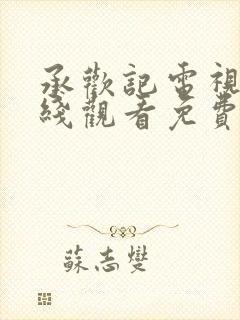 承歡記電視
綫觀看免費
蘇志燮